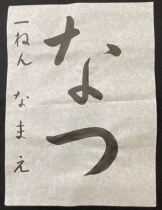 なつ
一ねん なまえ